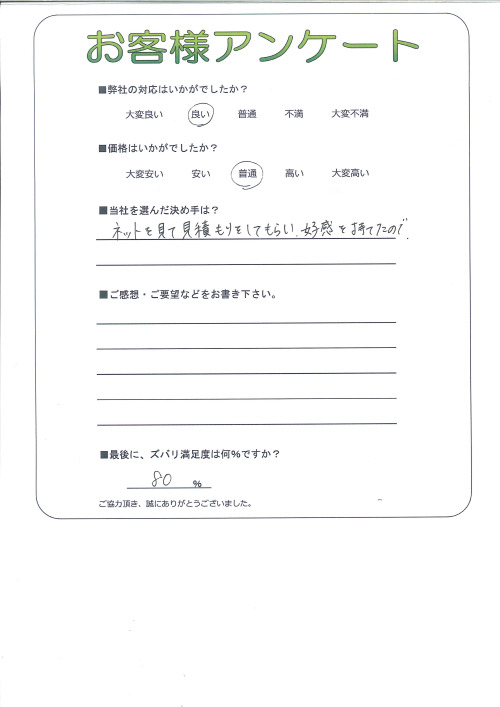 お客様アンケート
■弊社の対応はいかがでしたか？
大変良い 良い 普通 不満 大変不満
■価格はいかがでしたか？
大変安い 安い 普通 高い 大変高い
■当社を選んだ決め手は？
ネットを見て見積もりをしてもらい、好感を持てたので.
■ご感想・ご要望などをお書き下さい。
■最後に、ズバリ満足度は何%ですか？
80 %
ご協力頂き、誠にありがとうございました。